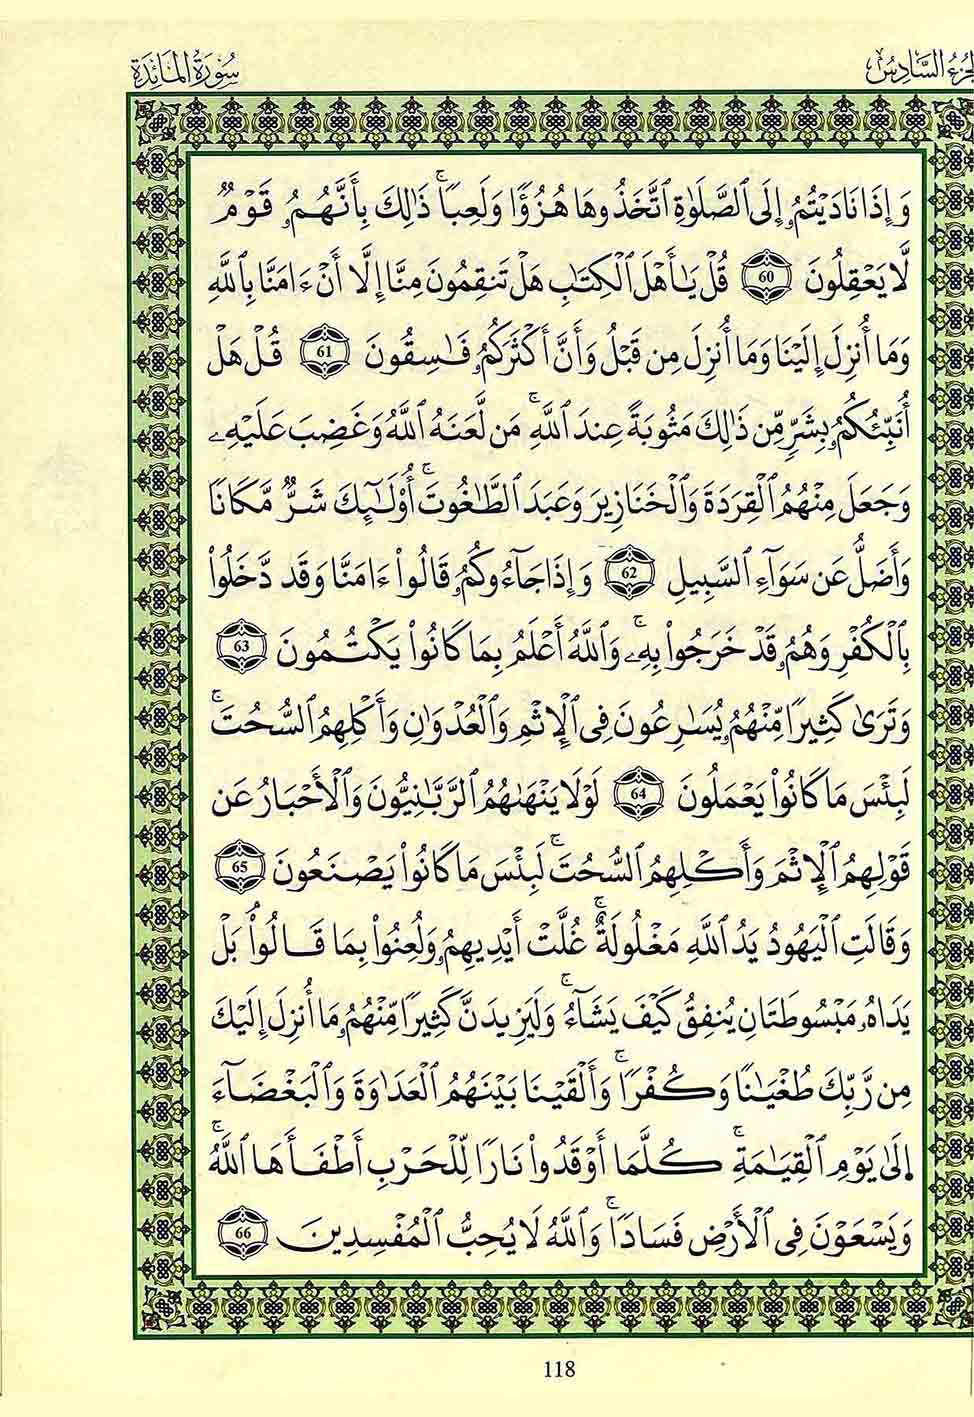 الجزء السادس
سورة المائدة
وَإِذَا نَادَيْتُمُۥٓ إِلَى ٱلصَّلَوٰةِ ٱتَّخَذُوهَا هُزُؤًا وَلَعِبًاۚ ذَٰلِكَ بِأَنَّهُمُۥ قَوْمٌ
لَّا يَعْقِلُونَ 60 قُلْ يَـٰٓأَهْلَ ٱلْكِتَـٰبِ هَلْ تَنقِمُونَ مِنَّآ إِلَّآ أَنْ ءَامَنَّا بِٱللَّهِ
وَمَآ أُنزِلَ إِلَيْنَا وَمَآ أُنزِلَ مِن قَبْلُ وَأَنَّ أَكْثَرَكُمُۥ فَـٰسِقُونَ 61 قُلْ هَلْ
أُنَبِّئُكُمُۥ بِشَرٍّ مِّن ذَٰلِكَ مَثُوبَةً عِندَ ٱللَّهِۚ مَن لَّعَنَهُ ٱللَّهُ وَغَضِبَ عَلَيْهِۦ
وَجَعَلَ مِنْهُمُ ٱلْقِرَدَةَ وَٱلْخَنَازِيرَ وَعَبَدَ ٱلطَّـٰغُوتَۚ أُوْلَـٰٓئِكَ شَرٌّ مَّكَانًا
وَأَضَلُّ عَن سَوَآءِ ٱلسَّبِيلِ 62 وَإِذَا جَآءُوكُمُۥ قَالُوٓاْ ءَامَنَّا وَقَد دَّخَلُواْ
بِٱلْكُفْرِ وَهُمُۥ قَدْ خَرَجُواْ بِهِۦۚ وَٱللَّهُ أَعْلَمُ بِمَا كَانُواْ يَكْتُمُونَ 63
وَتَرَىٰ كَثِيرًا مِّنْهُمُۥ يُسَـٰرِعُونَ فِى ٱلْإِثْمِ وَٱلْعُدْوَٰنِ وَأَكْلِهِمُ ٱلسُّحُتَۚ
لَبِئْسَ مَا كَانُواْ يَعْمَلُونَ 64 لَوْلَا يَنْهَىٰهُمُ ٱلرَّبَّـٰنِيُّونَ وَٱلْأَحْبَارُ عَن
قَوْلِهِمُ ٱلْإِثْمَ وَأَكْلِهِمُ ٱلسُّحُتَۚ لَبِئْسَ مَا كَانُواْ يَصْنَعُونَ 65
وَقَالَتِ ٱلْيَهُودُ يَدُ ٱللَّهِ مَغْلُولَةٌۚ غُلَّتْ أَيْدِيهِمُۥ وَلُعِنُواْ بِمَا قَالُواْۘ بَلْ
يَدَاهُۥ مَبْسُوطَتَانِ يُنفِقُ كَيْفَ يَشَآءُۚ وَلَيَزِيدَنَّ كَثِيرًا مِّنْهُمُۥ مَآ أُنزِلَ إِلَيْكَ
مِن رَّبِّكَ طُغْيَـٰنًا وَكُفْرًاۚ وَأَلْقَيْنَا بَيْنَهُمُ ٱلْعَدَاوَةَ وَٱلْبَغْضَآءَ
اِلَىٰ يَوْمِ ٱلْقِيَـٰمَةِۚ كُلَّمَآ أَوْقَدُواْ نَارًا لِّلْحَرْبِ أَطْفَأَهَا ٱللَّهُۚ
وَيَسْعَوْنَ فِى ٱلْأَرْضِ فَسَادًاۚ وَٱللَّهُ لَا يُحِبُّ ٱلْمُفْسِدِينَ 66
118